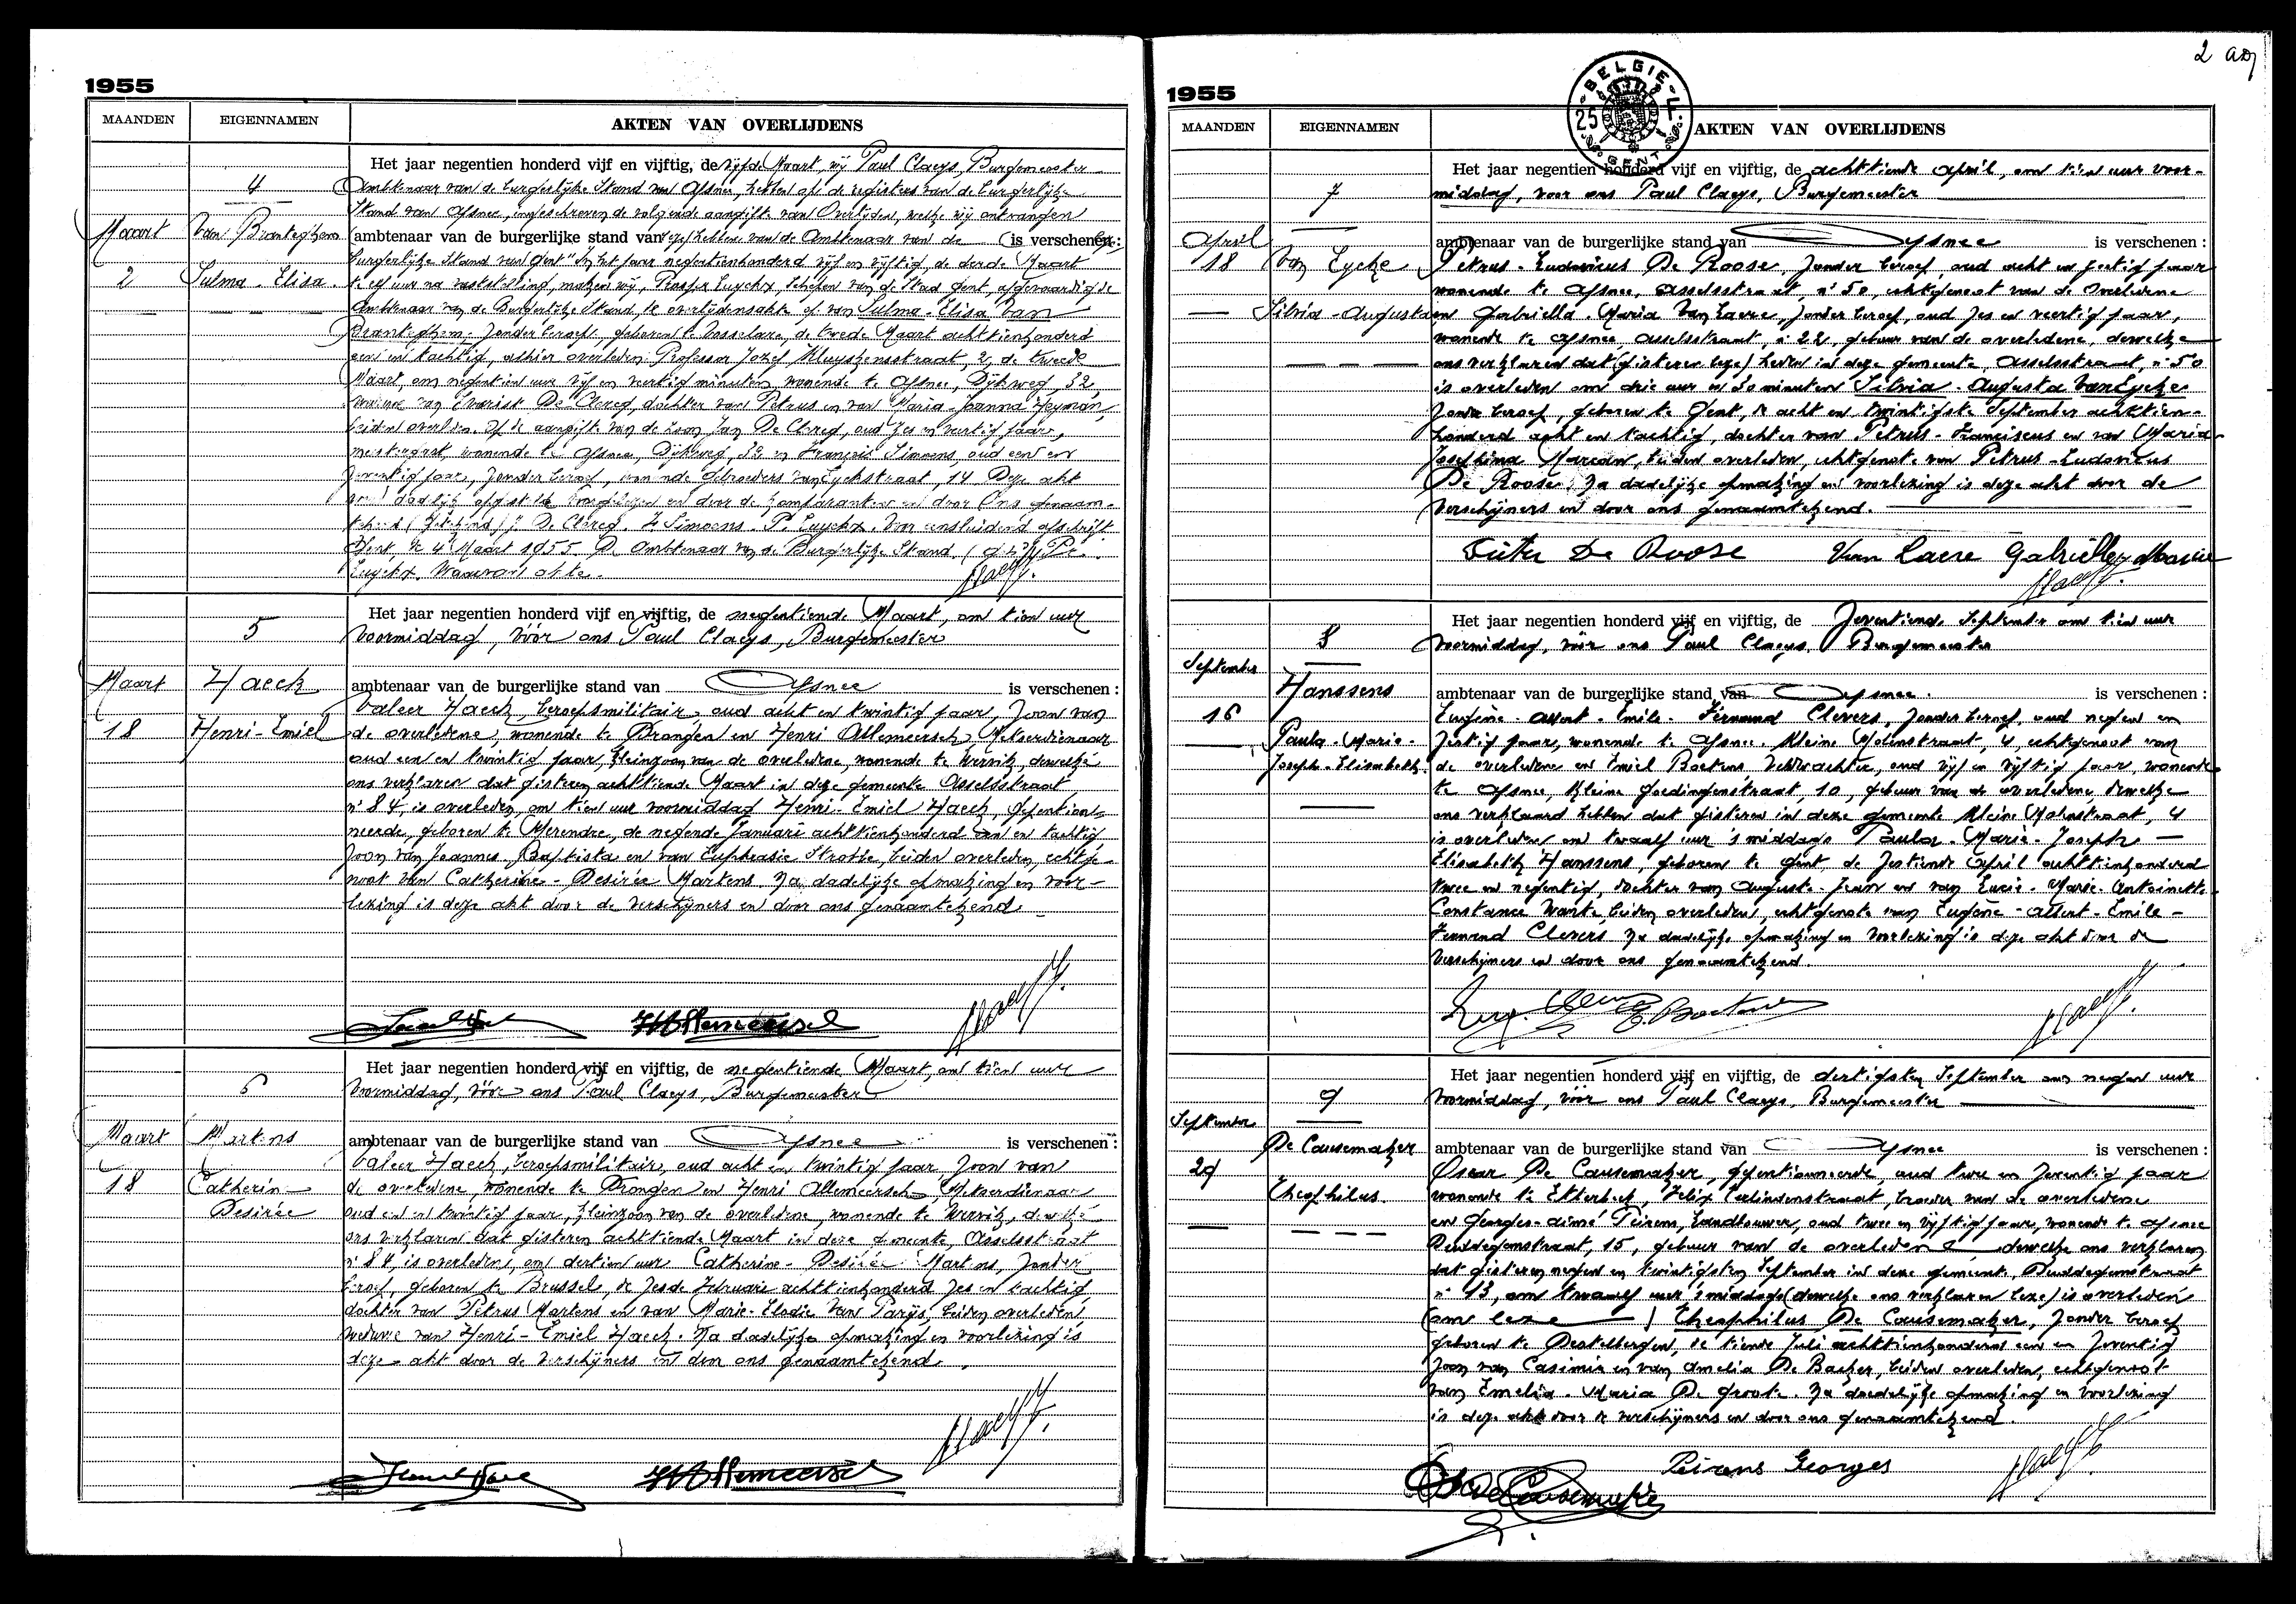 2
1955
MAANDEN EIGENNAMEN AKTEN VAN OVERLIJDENS
4
Maart Van Branteghem
2 Sulma - Elisa.
Het jaar negentien honderd vijf en vijftig, de vijfde Maart, wij Paul Claeys, Burgemeester
Ambtenaar van de burgerlijke Stand van Afsnee, hebben op de registers van de burgerlijke
Stand van Afsnee, ingeschreven de volgende aangifte van Overlijden, welke wij ontvangen
ambtenaar van de burgerlijke stand van hebben van de Ambtenaar van de is verschenen:
burgerlijke Stand van Gent "In het jaar negentienhonderd vijf en vijftig, de derde Maart
te elf uur na vaststelling, maken wij, Prosper Luyckx, Schepen van de Stad Gent, afgevaardigde
Ambtenaar van de Burgerlijke Stand, de overlijdensakte op van Sulma-Elisa Van
Branteghem, zonder beroep, geboren te Vosselare, de tweede Maart achttienhonderd
een en tachtig, alhier overleden Professor Jozef Kluyskensstraat, 2, de tweede
Maart, om negentien uur vijf en veertig minuten, wonende te Afsnee, Dijkweg, 32,
weduwe van Evarist De Clercq, dochter van Petrus en van Maria-Joanna Heyman,
beiden overleden. Op de aangifte van de zoon Jan De Clercq, oud zes en veertig jaar,
meestergast, wonende te Afsnee, Dijkweg, 32 en François Simoens, oud een en
zeventig jaar, zonder beroep, wonende Gebroeders van Eyckstraat, 14 Deze akt
werd dadelijk opgesteld voorgelezen en door de Comparanten en door Ons genaam-
tekend (Getekend) J. De Clercq. F. Simoens. Pr Luyckx. Voor eensluidend afschrift
Gent, de 4 Maart 1955. De Ambtenaar van de Burgerlijke Stand. (get.) Pr.
Luyckx. Waarvan akte.
5
Maart Haeck
18 Henri-Emiel
Het jaar negentien honderd vijf en vijftig, de negentiende Maart, om tien uur
voormiddag, vóór ons Paul Claeys, Burgemeester
ambtenaar van de burgerlijke stand van Afsnee is verschenen:
Valeer Haeck, beroepsmilitair, oud acht en twintig jaar, zoon van
de overledene, wonende te Drongen en Henri Allemeersch, Metserdienaar
oud een en twintig jaar, kleinzoon van de overledene, wonende te Wervik, dewelke
ons verklaren dat gisteren achttiende Maart in deze gemeente Asselsstraat
n° 84, is overleden, om tien uur voormiddag Henri-Emiel Haeck, gepention-
neerde, geboren te Merendree, de negende Januari achttienhonderd een en tachtig
zoon van Joannes-Baptista en van Euphrasie Strobbe, beiden overleden, echtge-
noot van Catherine-Desirée Martens. Na dadelijke opmaking en voor-
lezing is deze akt door de verschijners en door ons genaamtekend
HAllemeersch
6
Maart Martens
18 Catherin-
Desirée
Het jaar negentien honderd vijf en vijftig, de negentiende Maart, om tien uur
voormiddag, vóór ons Paul Claeys, Burgemeester
ambtenaar van de burgerlijke stand van Afsnee is verschenen:
Valeer Haeck, beroepsmilitair, oud acht en twintig jaar zoon van
de overledene, wonende te Drongen en Henri Allemeersch, Metserdienaar
oud een en twintig jaar, kleinzoon van de overledene, wonende te Wervik, dewelke
ons verklaren dat gisteren achttiende Maart in deze gemeente, Asselsstraat
n° 84, is overleden, om dertien uur Catherine-Desirée Martens, zonder
beroep, geboren te Brussel, de zesde Februari achttienhonderd zes en tachtig
dochter van Petrus Martens en van Marie-Elodie Van Parijs, beiden overleden,
weduwe van Henri-Emiel Haeck. Na dadelijke opmaking en voorlezing is
deze akt door de verschijners en door ons genaamtekend.
HAllemeersch
1955
MAANDEN EIGENNAMEN AKTEN VAN OVERLIJDENS
BELGIE
25
GENT
7
April
18 Van Eycke
Silvia-Augusta
Het jaar negentien honderd vijf en vijftig, de achttiende April, om tien uur voor-
middag, voor ons Paul Claeys, Burgemeester
ambtenaar van de burgerlijke stand van Afsnee is verschenen:
Petrus-Ludovicus De Roose, zonder beroep, oud acht en zestig jaar
wonende te Afsnee, Asselsstraat, n° 50, echtgenoot van de Overledene
en Gabriella-Maria Van Laere, zonder beroep, oud zes en veertig jaar,
wonende te Afsnee, Asselsstraat, n° 22, gebuur van de overledene, dewelke
ons verklaren dat (gisteren leze) heden in deze gemeente, Asselsstraat, n° 50
is overleden om drie uur en 30 minuten Silvia-Augusta Van Eycke
zonder beroep, geboren te Gent, de acht en twintigste September achttien-
honderd acht en tachtig, dochter van Petrus-Franciscus en van Maria-
Josephina Mareau, beiden overleden, echtgenote van Petrus-Ludovicus
De Roose. Na dadelijke opmaking en voorlezing is deze akt door de
verschijners en door ons genaamtekend.
Peter De Roose Van Laere Gabriella Maria
8
September Hanssens
16 Paula-Marie-
Joseph-Elisabeth.
Het jaar negentien honderd vijf en vijftig, de zeventiende September om tien uur
voormiddag, vóór ons Paul Claeys, Burgemeester
ambtenaar van de burgerlijke stand van Afsnee. is verschenen:
Eugène-Albert-Emile-Fernand Clevers, zonder beroep, oud negen en
zestig jaar, wonende te Afsnee, Kleine Molenstraat, 4, echtgenoot van
de overledene en Emiel Boetens, Veldwachter, oud vijf en vijftig jaar, wonende
te Afsnee, Kleine Goedingenstraat, 10, gebuur van de overledene dewelke
ons verklaard hebben dat gisteren in deze gemeente Kleine Molenstraat, 4
is overleden om twaalf uur 's middags Paula-Marie-Joseph-
Elisabeth Hanssens, geboren te Gent, de zestiende April achttienhonderd
twee en negentig, dochter van Auguste-Jean en van Lucie-Marie-Antoinette-
Constance Wante beiden overleden, echtgenote van Eugène-Albert-Emile-
Fernand Clevers Na dadelijke opmaking en voorlezing is deze akt door de
verschijners en door ons genaamtekend.
E. Boetens
9
September De Causemaker
29 Theophilus.
Het jaar negentien honderd vijf en vijftig, de dertigsten September om negen uur
voormiddag, vóór ons Paul Claeys, Burgemeester
ambtenaar van de burgerlijke stand van Afsnee is verschenen:
Oscar De Causemaker, gepentionneerde, oud twee en zeventig jaar
wonende te Etterbeek, Felix Terlindenstraat, broeder van de overledene
en Georges-Aimé Peirens, Landbouwer, oud twee en vijftig jaar, wonende te Afsnee
Duddegemstraat, 15, gebuur van de overledene dewelke ons verklaren
dat gisteren negen en twintigsten September in deze gemeente, Duddegemstraat
n° 13, om twaalf uur 's middags (dewelke ons verklaren leze) is overleden
Theophilus De Causemaker, zonder beroep
geboren te Destelbergen, de tiende Juli achttienhonderd een en zeventig
zoon van Casimir en van Amelia De Backer, beiden overleden, echtgenoot
van Emelia-Maria De Groote. Na dadelijke opmaking en voorlezing
is deze akt door de verschijners en door ons genaamtekend.
Peirens Georges